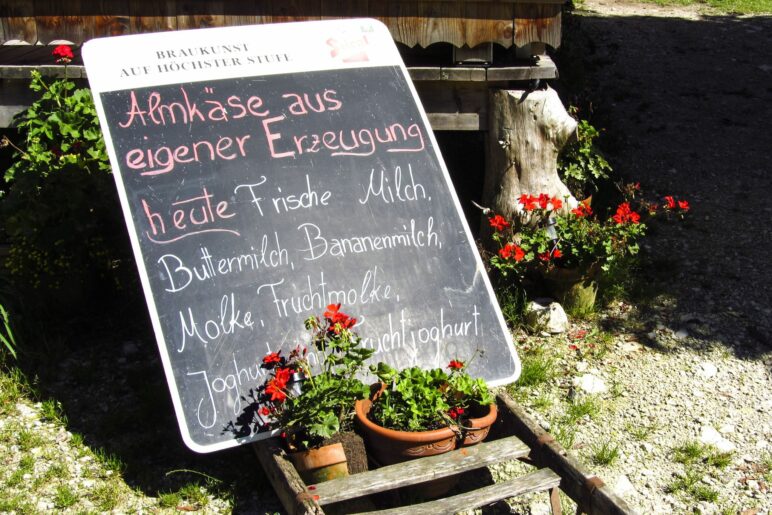 BRAUKUNST
AUF HÖCHSTER STUFE
Almkäse aus
eigener Erzeugung
heute Frische Milch,
Buttermilch, Bananenmilch,
Molke, Fruchtmolke,
Fruchtjoghurt